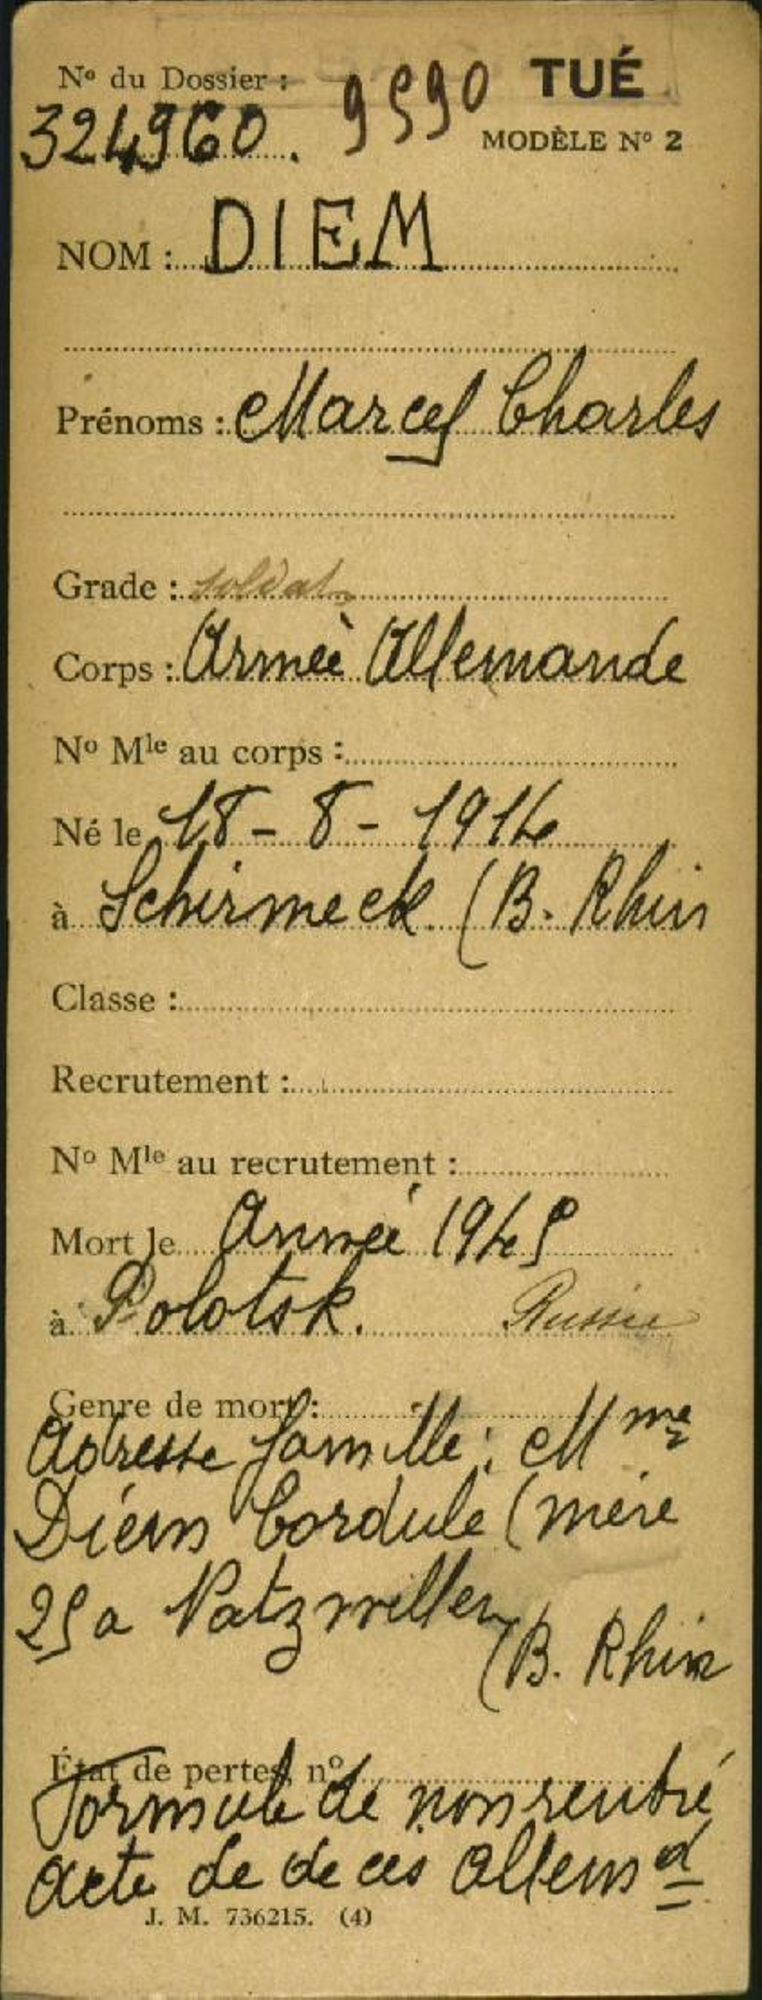 N° du Dossier :
324960. 9590
TUÉ
MODÈLE N° 2
NOM : DIEM
Prénoms : Marcel Charles
Grade : soldat
Corps : Armée Allemande
N° Mle au corps :
Né le 18 - 8 - 1914
à Schirmeck (B. Rhin
Classe :
Recrutement :
N° Mle au recrutement :
Mort le Année 1945
à Polotsk. Russie
Genre de mort :
Adresse famille : Mme
Diem Cordule (mère
25 a Natzwiller
(B. Rhin
État de pertes, n°
Formule de non rentré
acte de deces allemd
J. M. 736215. (4)